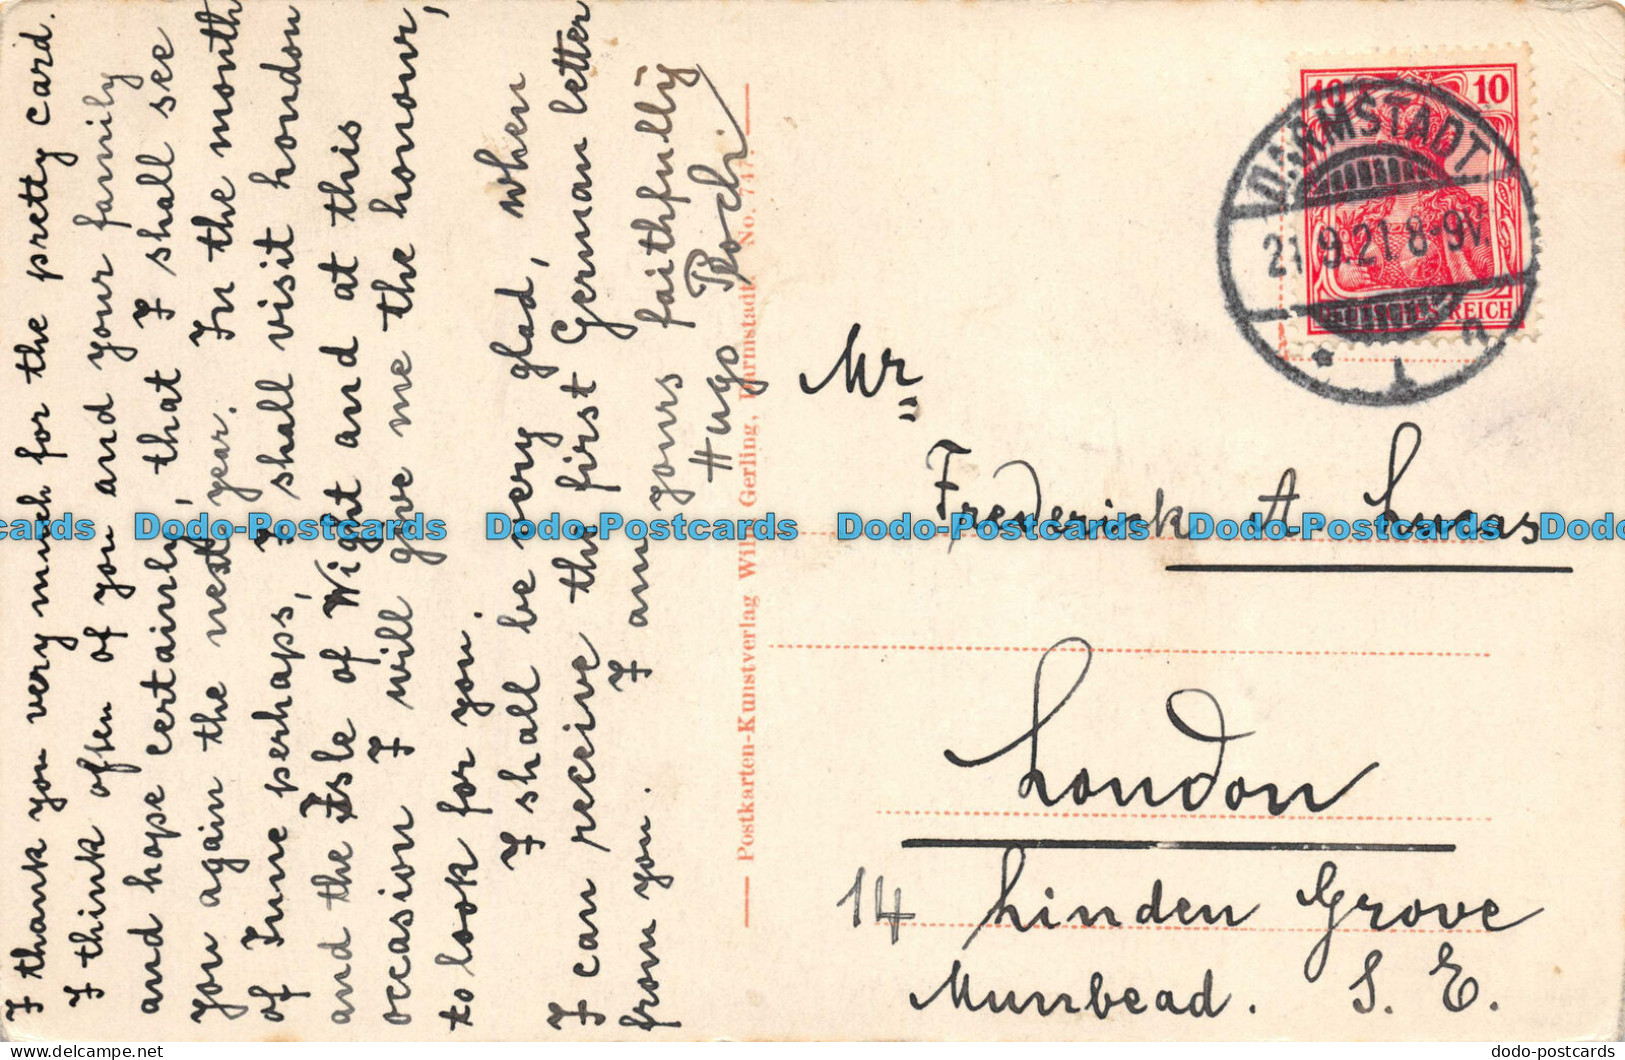 I thank you very much for the pretty card.
I think often of you and your family
and hope certainly, that I shall see
you again the next year. In the month
of June perhaps, I shall visit London
and the Isle of Wight and at this
occasion I will give me the honour,
to look for you.
I shall be very glad, when
I can receive the first German letter
from you. I am yours faithfully
Hugo
Postkarten-Kunstverlag Wilh. Gerling, Darmstadt No. 747.
10 10
DEUTSCHES REICH
DARMSTADT.
21.9.21 8-9V.
* 1 n
Mr
Frederick A. Lucas
London
14 Linden Grove
Munbead. S. E.
cards Dodo-Postcards Dodo-Postcards Dodo-Postcards Dodo-Postcards Dodo
dodo-postcards